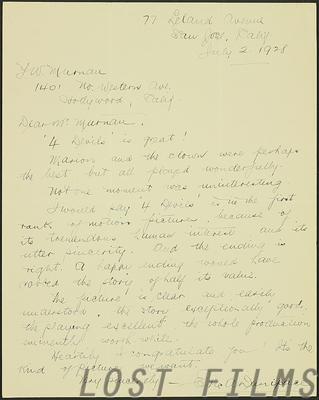 77 Leland Avenue
San Jose, Calif.
July 2 1928
F. W. Murnau
1401 No. Western Ave.
Hollywood, Calif.
Dear Mr Murnau:
'4 Devils' is great!
Marion and the clown were perhaps
the best but all played wonderfully.
Not one moment was uninteresting.
I would say '4 Devils' is in the first
rank of motion pictures because of
its tremendous human interest and its
utter sincerity. And the ending is
right. A happy ending would have
robbed the story of half its value.
The picture is clear and easily
understood, the story exceptionally good,
the playing excellent, the whole production
eminently worth while.
Heartily I congratulate you! It's the
kind of picture we want.
Very sincerely —
LOST FILMS